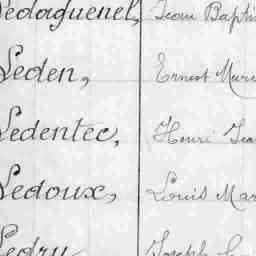 Ledaguenel, Jean Baptis
Leden, Ernest Mari
Ledentec, Henri Jea
Ledoux, Louis Mar
Ledru Joseph